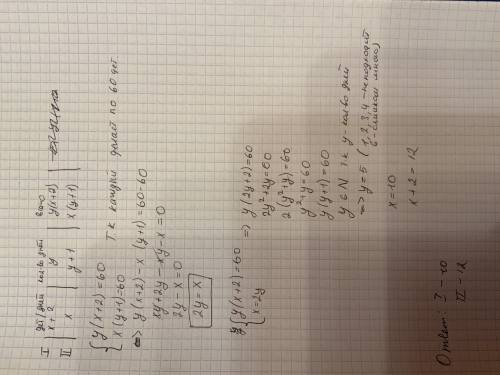 дет/дней кол-во дней всего
I x+2 | y | y(x+2)
II x | y+1 | x(y+1)
{ y(x+2)=60
x(y+1)=60
Т.к каждый делает по 60 дет.
=> y(x+2)-x(y+1)=60-60
xy+2y-xy-x=0
2y-x=0
2y=x
{ y(x+2)=60
x=2y
=> y(2y+2)=60
2y²+2y=60
2(y²+y)=60
y²+y=60
y(y+1)=60
y ∈ N т.к y-кол-во дней
=> y=5 (1,2,3,4 - не подходит
6-слишком много)
x=10
x+2=12
Ответ: I - 10
II - 12